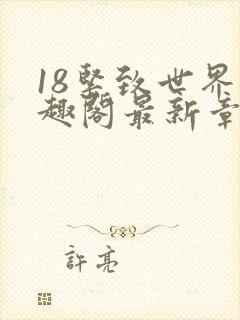 18坚致世界
趣阁最新章
許亮